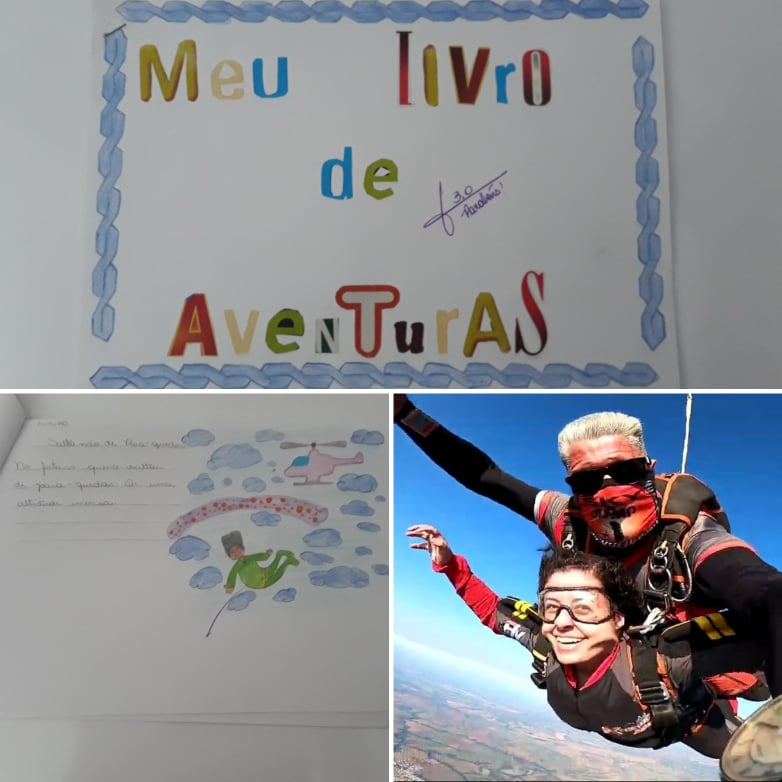 Meu livro
de
AvenTurAS
3,0
Parabéns!
Saltando de Para-quedas
No futuro quero saltar
de para-quedas. De uma
altitude imensa.